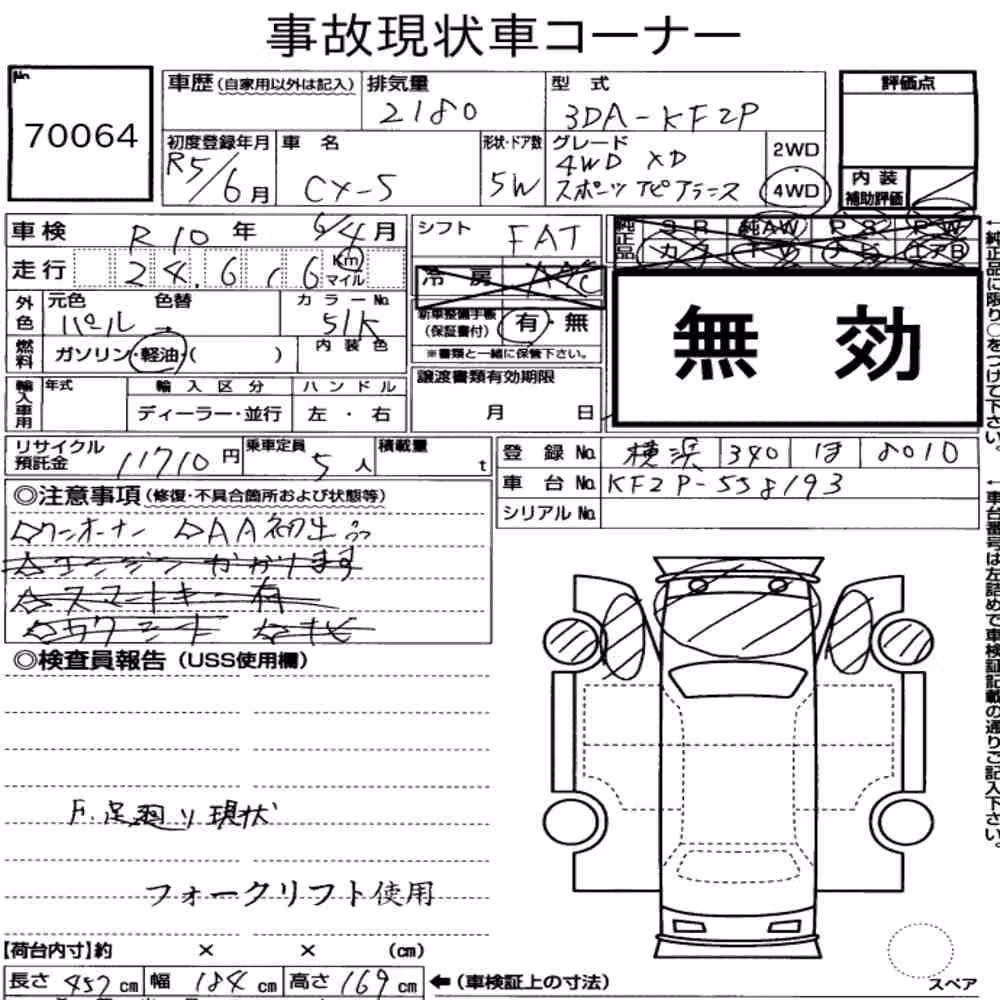 事故現状車コーナー
No.
70064
車歴(自家用以外は記入)
排気量
2180
型 式
3DA-KF2P
評価点
初度登録年月
R5/6月
車 名
CX-5
形状・ドア数
5W
グレード
4WD XD
スポーツアピアランス
2WD
4WD
内 装
補助評価
車検 R10 年 6/4月
走行 24.6,6 Km マイル
外色
元色 色替
パール →
カラーNo.
51K
燃料
ガソリン・軽油・( )
内 装 色
輸入車用
年式
輸 入 区 分
ディーラー・並行
ハ ン ド ル
左 ・ 右
シフト FAT
冷 房 A/C
新車整備手帳
(保証書付)
有・無
※書類と一緒に保管下さい。
譲渡書類有効期限
月 日
純正品
S R 純AW P S P W
カ T TV ナビ エアB
無 効
←純正品に限り○をつけて下さい。
リサイクル
預託金
11710円
乗車定員
5人
積載量
t
登 録 No. 横浜 340 は 8010
車 台 No. KF2P-558193
シリアル No.
←車台番号は左詰めで車検証記載の通りご記入下さい。
◎注意事項(修復・不具合箇所および状態等)
☆ワンオーナー ☆AA初出品
☆エンジンかかります
☆スマートキー有
☆カクシート ☆ナビ
◎検査員報告(USS使用欄)
F.足廻り現状
フォークリフト使用
【荷台内寸】約 × × (cm)
長さ 457 cm 幅 184 cm 高さ 169 cm
←(車検証上の寸法)
スペア